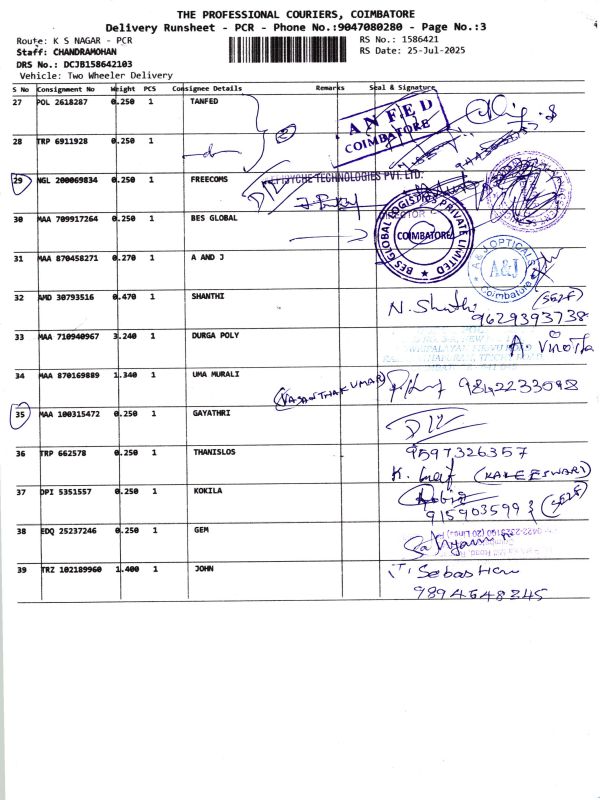 THE PROFESSIONAL COURIERS, COIMBATORE
Delivery Runsheet - PCR - Phone No.:9047080280 - Page No.:3
Route: K S NAGAR - PCR RS No.: 1586421
Staff: CHANDRAMOHAN RS Date: 25-Jul-2025
DRS No.: DCJB158642103
Vehicle: Two Wheeler Delivery
S No Consignment No Weight PCS Consignee Details Remarks Seal & Signature
27 POL 2618287 0.250 1 TANFED
TANFED
COIMBATORE
28 TRP 6911928 0.250 1
29 NGL 200069834 0.250 1 FREECOMS
TECHNOLOGIES PVT. LTD.
30 MAA 709917264 0.250 1 BES GLOBAL
BES GLOBAL LOGISTICS PRIVATE LIMITED
COIMBATORE
31 MAA 870458271 0.270 1 A AND J
A & J OPTICALS
A&J
Coimbatore
32 AMD 30793516 0.470 1 SHANTHI
N. Shanthi (SELF)
9629393738
33 MAA 710940967 3.240 1 DURGA POLY
A. Vinotha
34 MAA 870169889 1.340 1 UMA MURALI
(VASANTHAKUMAR)
35 MAA 100315472 0.250 1 GAYATHRI
36 TRP 662578 0.250 1 THANISLOS
9597326357
(KALEESWARI)
37 DPI 5351557 0.250 1 KOKILA
915903599 (SELF)
38 EDQ 25237246 0.250 1 GEM
39 TRZ 102189960 1.400 1 JOHN
Sebastian
9894648345